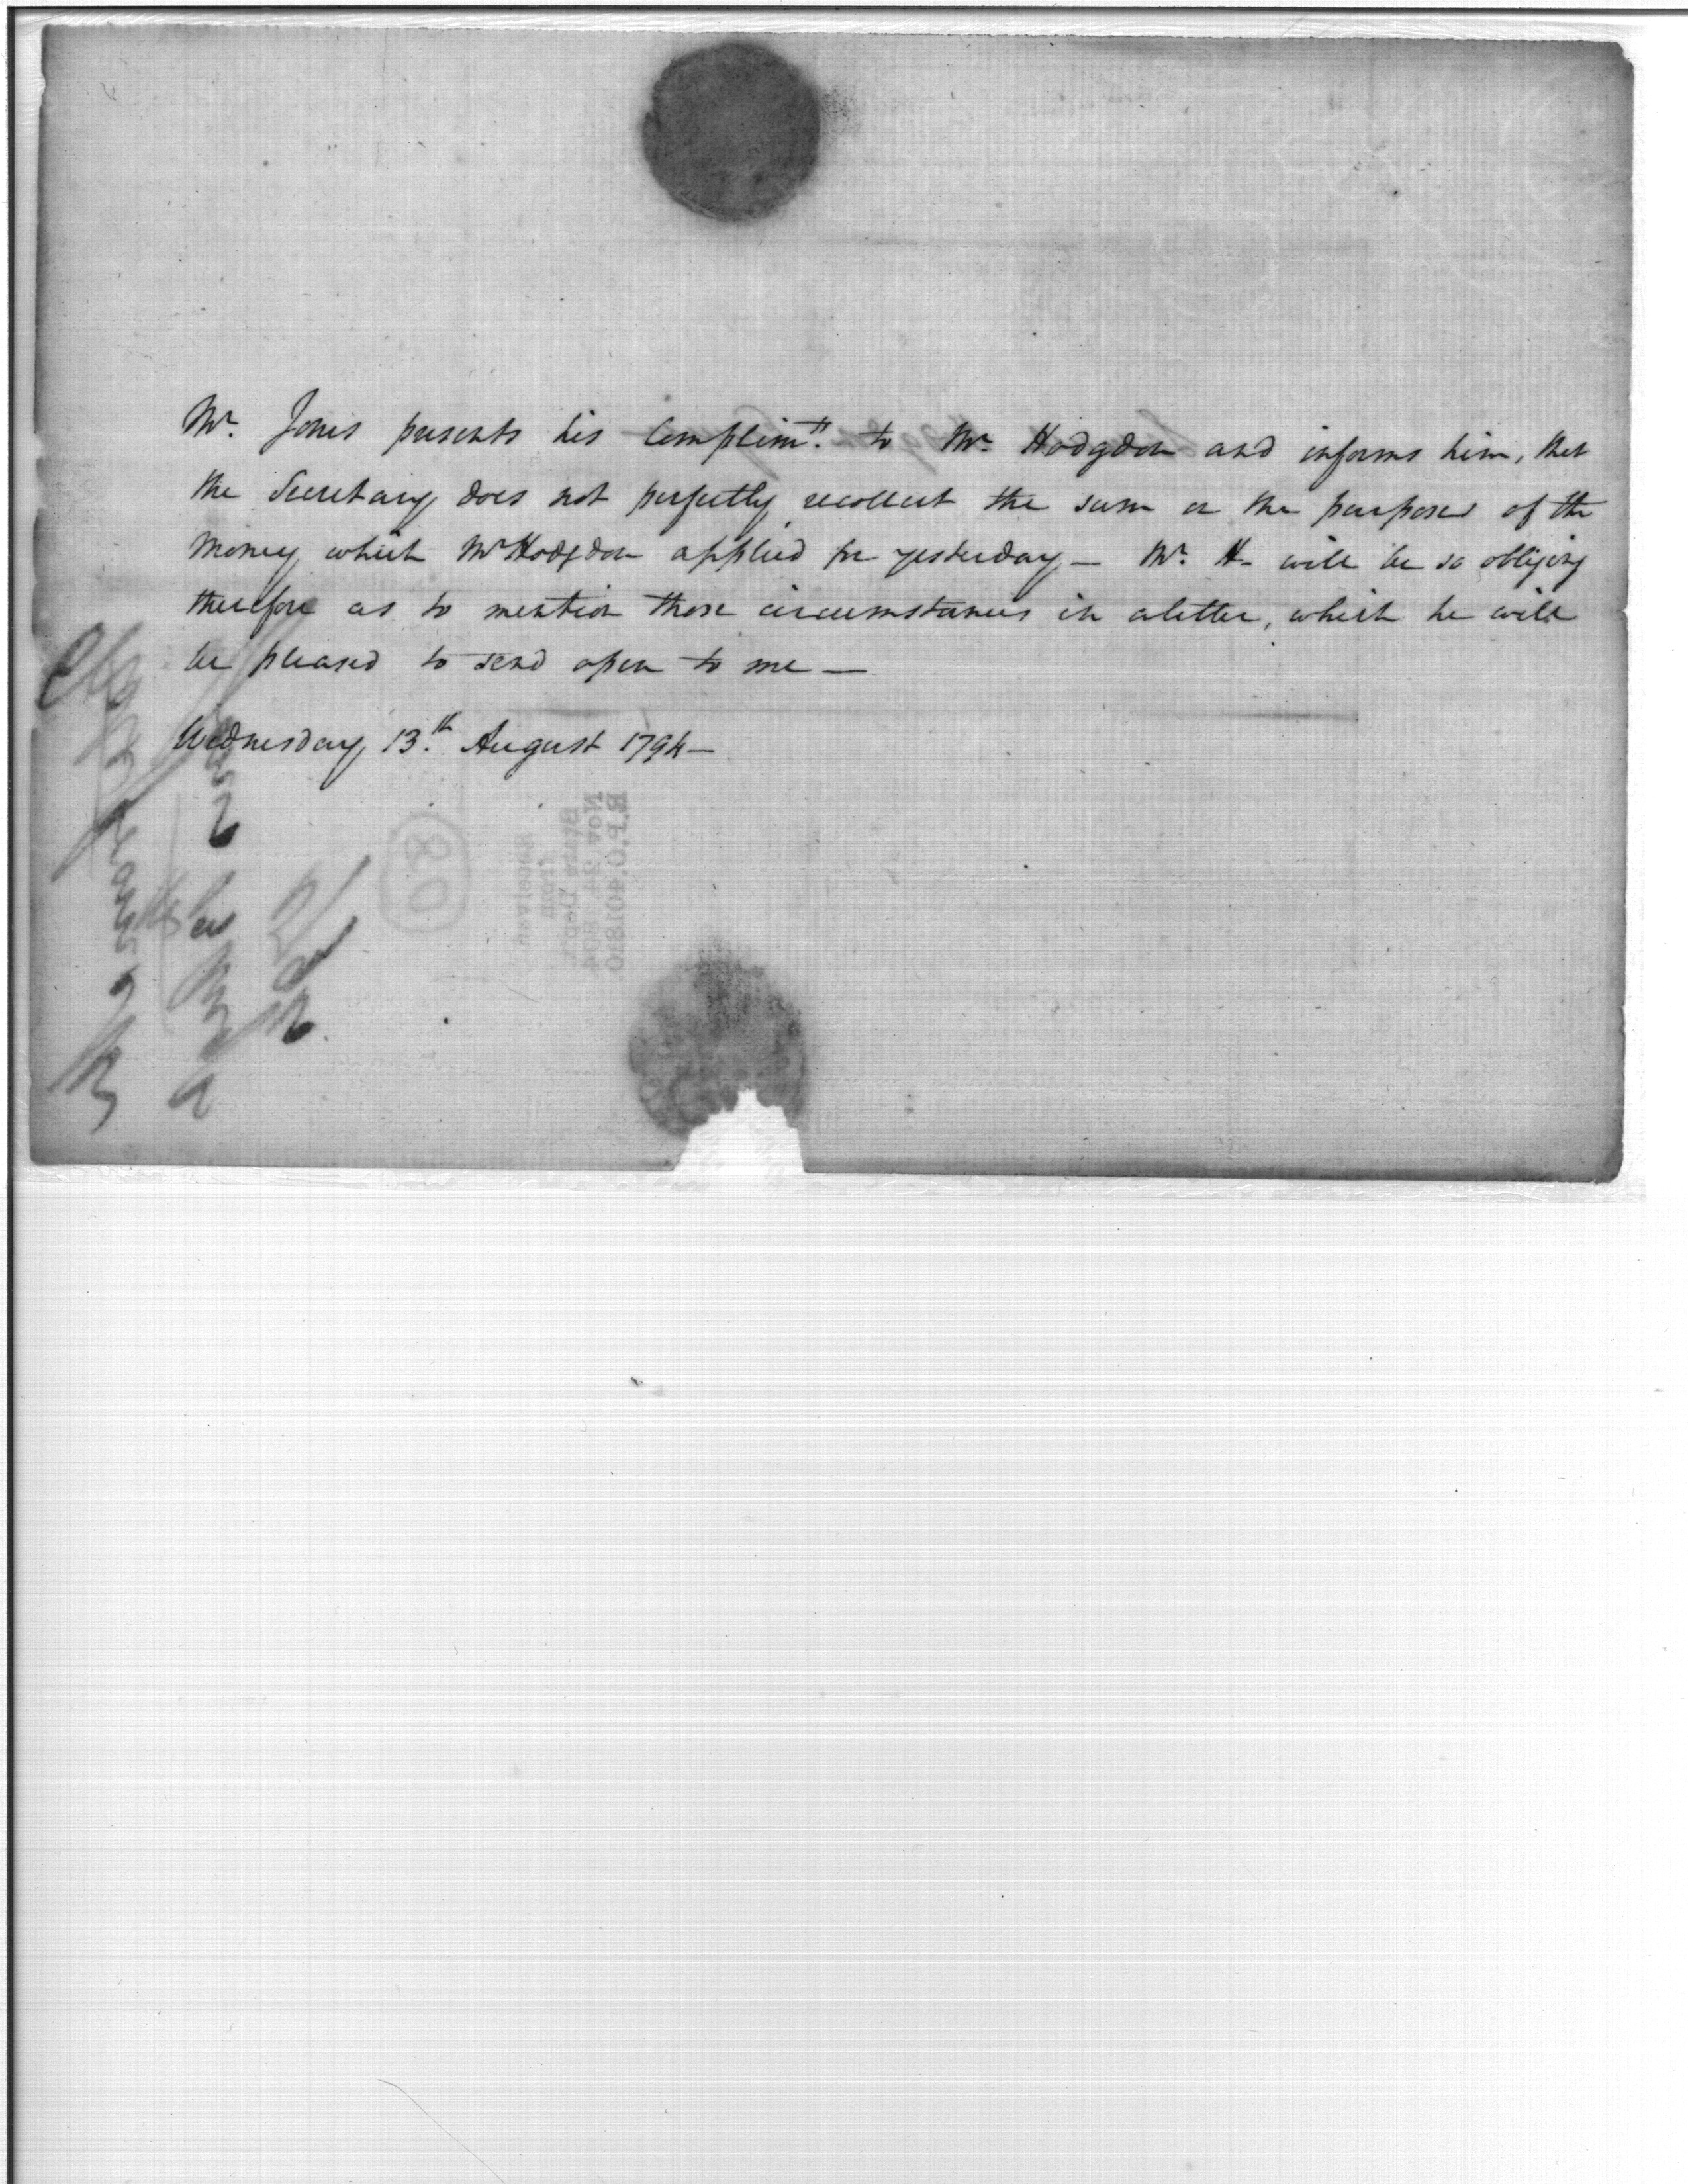 Mr. Jones presents his Complimts. to Mr. Hodgdon and informs him, that
the Secretary does not perfectly recollect the sum or the purposes of the
money, which Mr Hodgdon applied for yesterday – Mr. H– will be so obliging
therefore as to mention those circumstances in a letter, which he will
be pleased to send open to me —
Wednesday, 13.th August 1794 –
80
Received
from
State Dep.
R.P.O. 401810